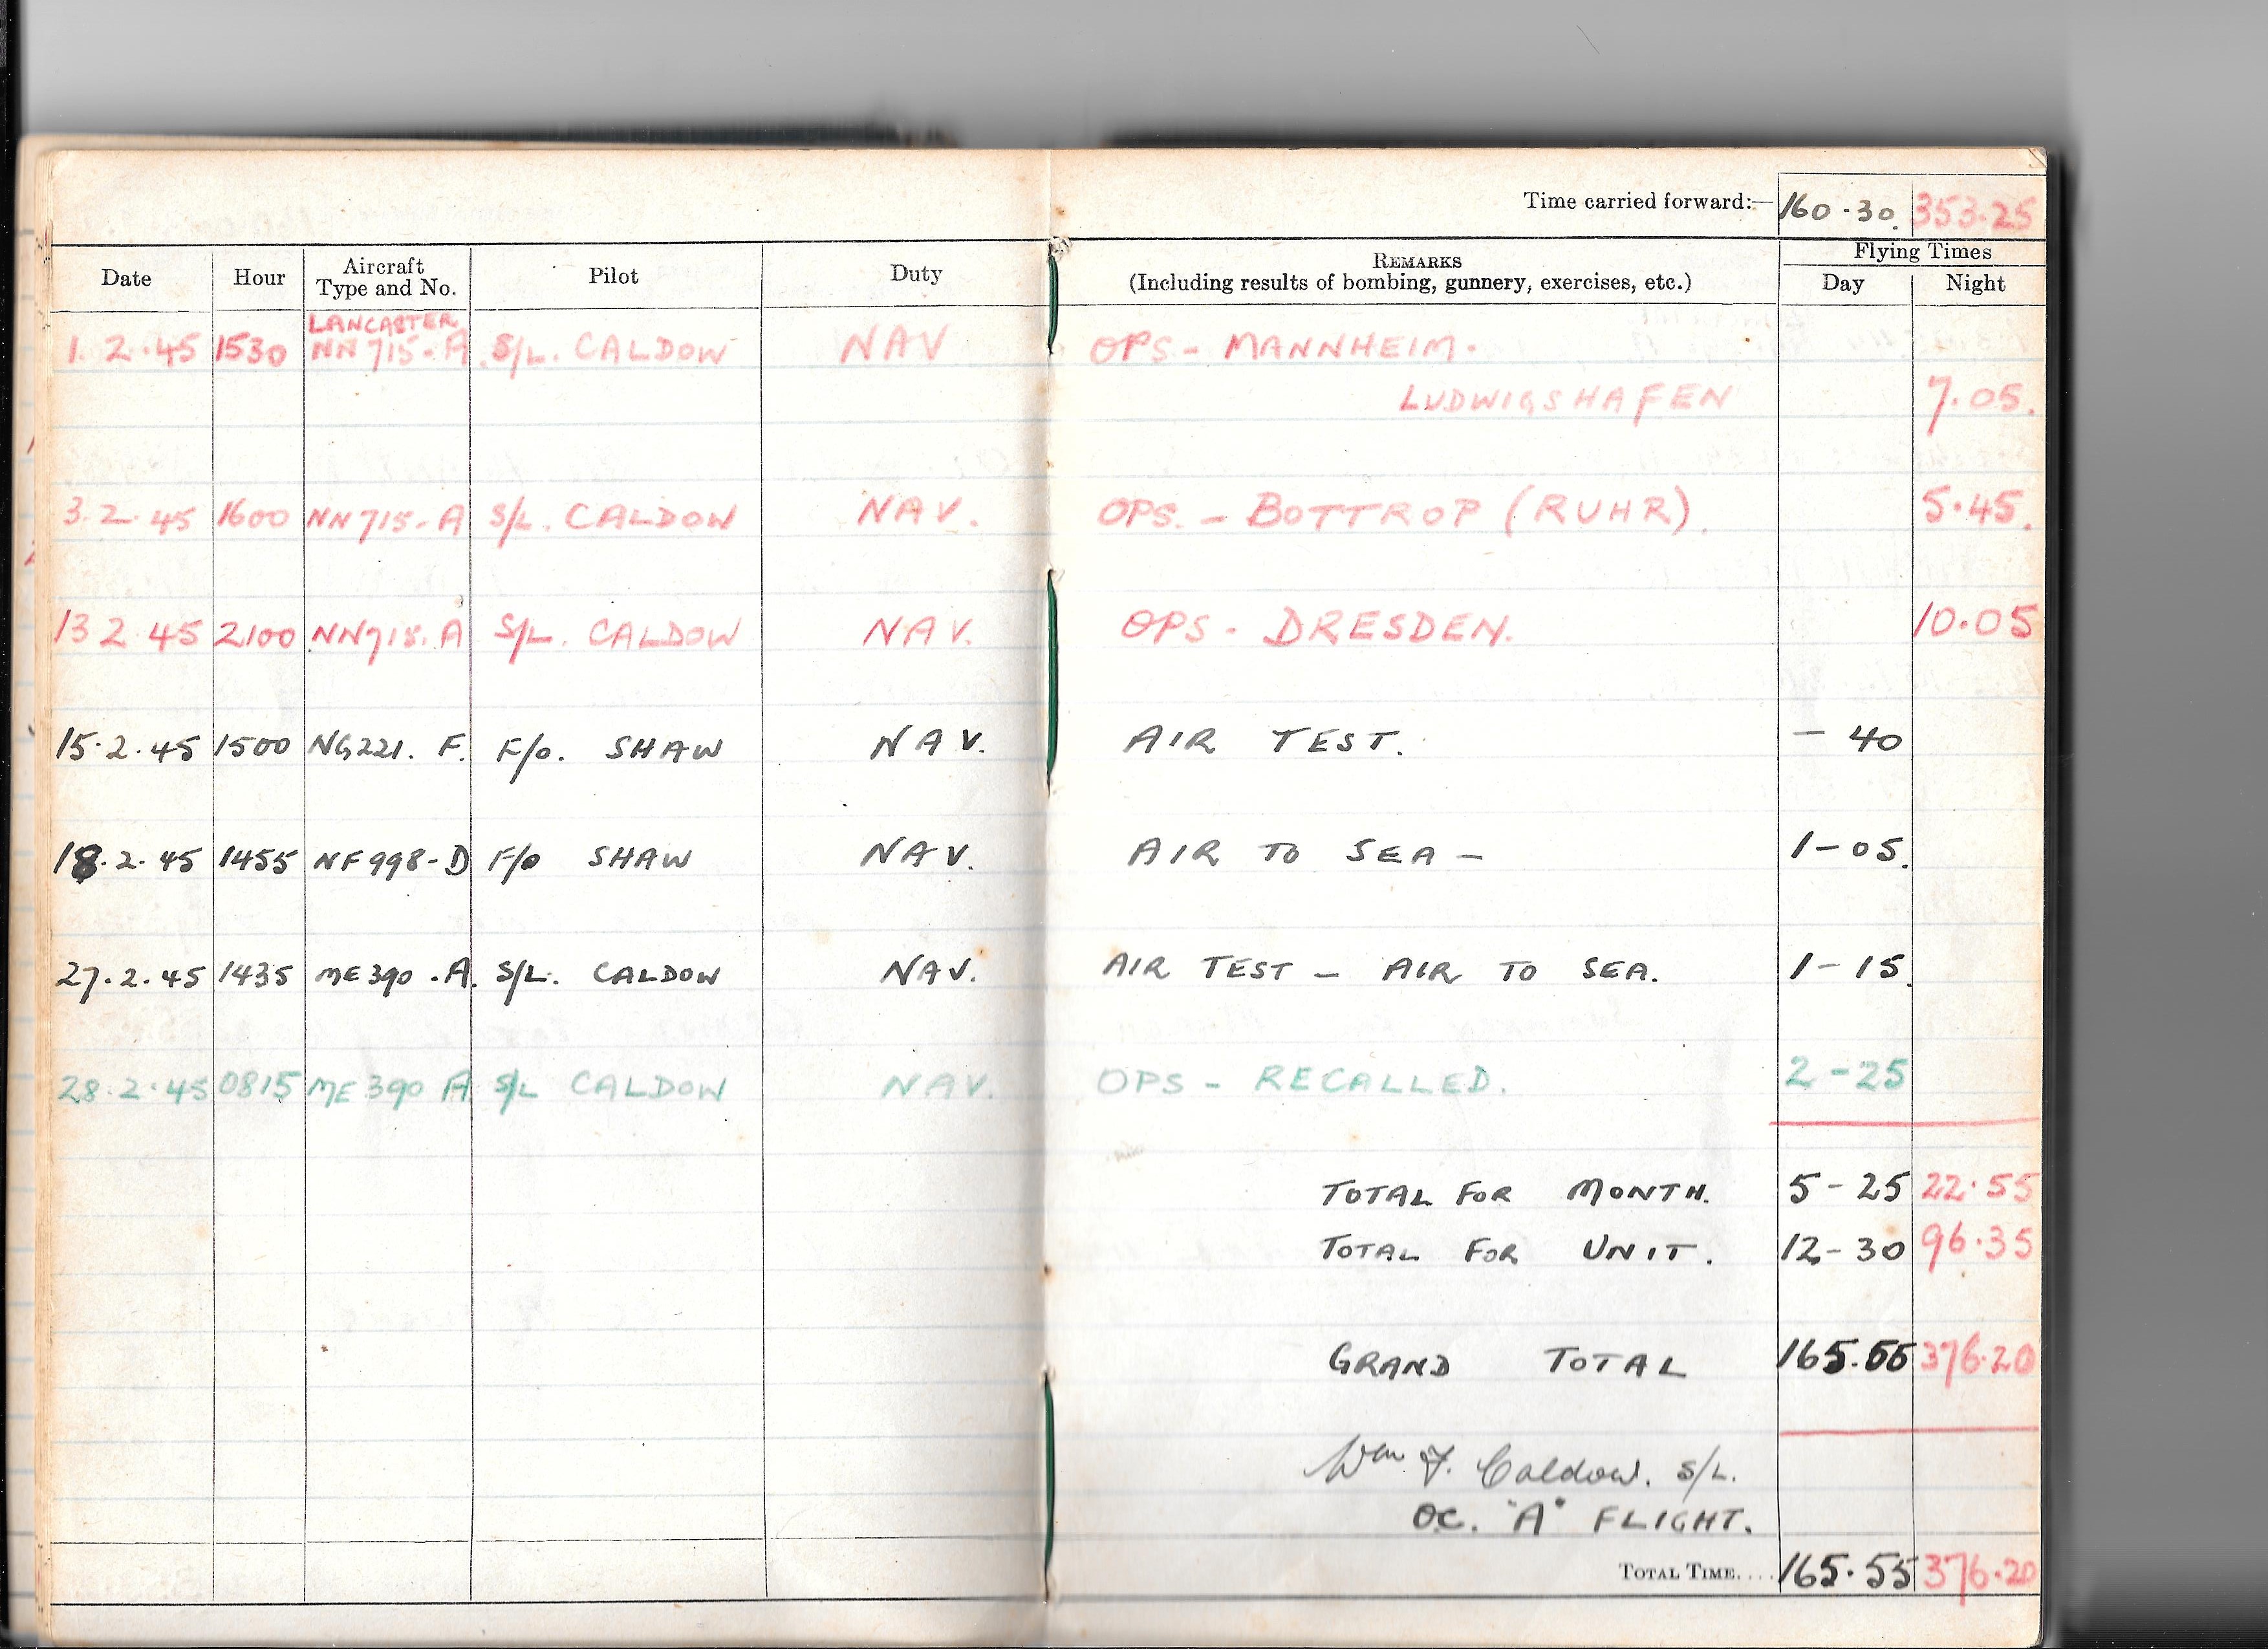 Time carried forward:— 160.30. 353.25
Date Hour Aircraft Type and No. Pilot Duty REMARKS (Including results of bombing, gunnery, exercises, etc.) Flying Times Day Night
LANCASTER
1.2.45 1530 NN715-A S/L. CALDOW NAV OPS - MANNHEIM.
LUDWIGSHAFEN 7.05.
3.2.45 1600 NN715-A S/L. CALDOW NAV. OPS. - BOTTROP (RUHR). 5.45.
13 2 45 2100 NN715.A S/L. CALDOW NAV. OPS - DRESDEN. 10.05
15.2.45 1500 NG221. F. F/O. SHAW NAV. AIR TEST. - 40
18.2.45 1455 NF998-D F/O SHAW NAV. AIR TO SEA - 1-05.
27.2.45 1435 ME390.A. S/L. CALDOW NAV. AIR TEST - AIR TO SEA. 1-15.
28.2.45 0815 ME390 A S/L CALDOW NAV. OPS - RECALLED. 2-25
TOTAL FOR MONTH. 5-25 22.55
TOTAL FOR UNIT. 12-30 96.35
GRAND TOTAL 165.55 376.20
Wm F. Caldow. S/L.
OC. "A" FLIGHT.
TOTAL TIME.... 165.55 376.20